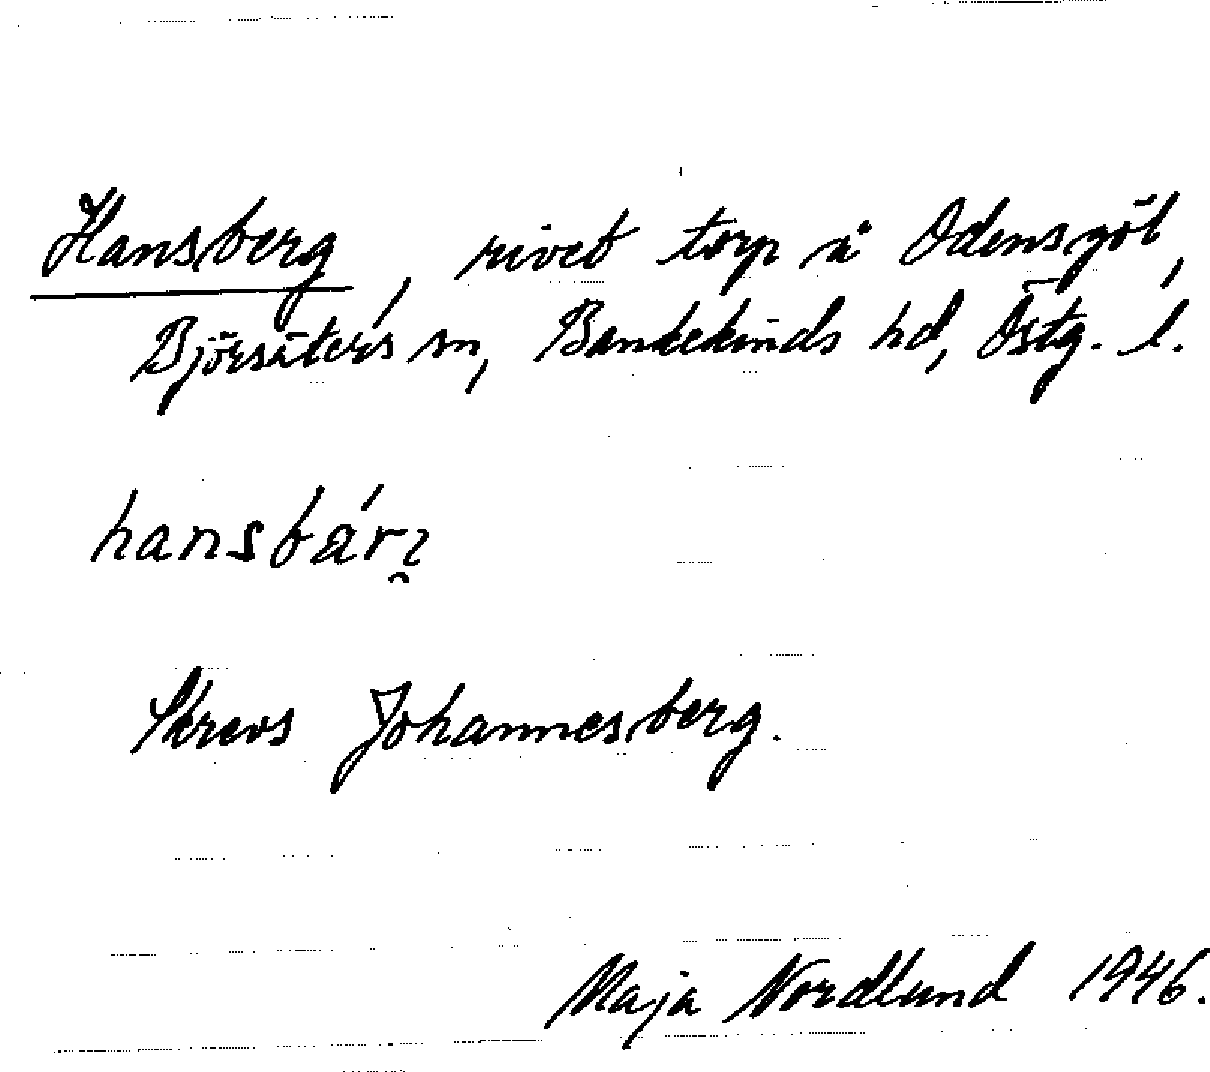 Hansberg, rivet torp å Odensgöl,
Björsäters sn, Bankekinds hd, Östg. l.
hansbár̯ɿ
Skrevs Johannesberg.
Maja Nordlund 1946.